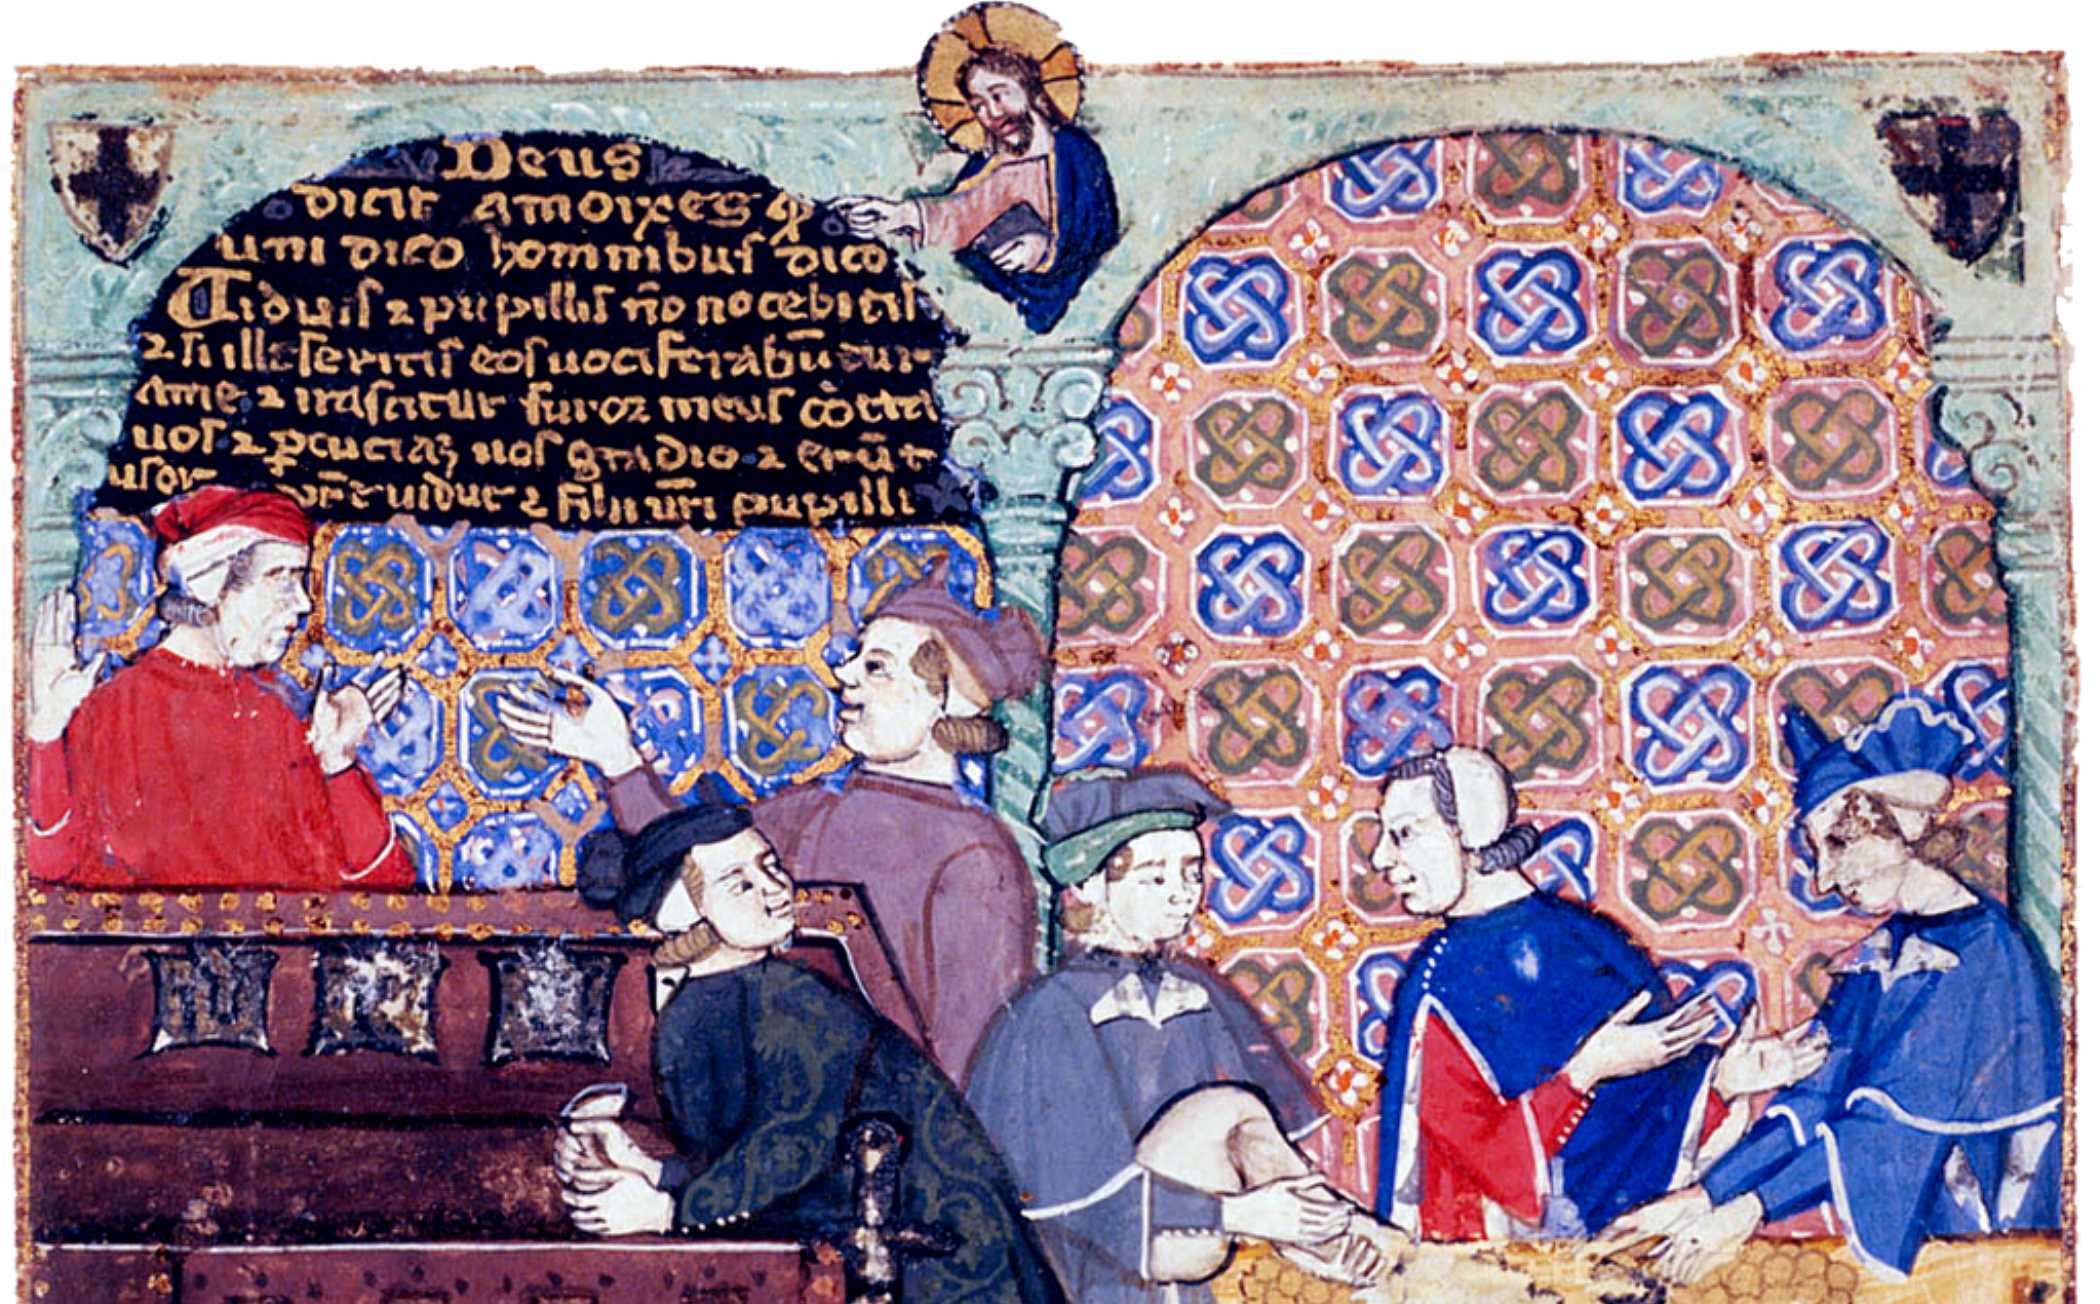 Deus
dicit amoixes qđ
uni dico hominibus dico
Uiduis ⁊ pupillis nō nocebitis
⁊ si illeseritis eos uociferabūtur
ame ⁊ irascitur furor meus cōtra
uos ⁊ ꝑcuciaꝫ uos gladio ⁊ erūt
uidue ⁊ filii ur̄i pupilli